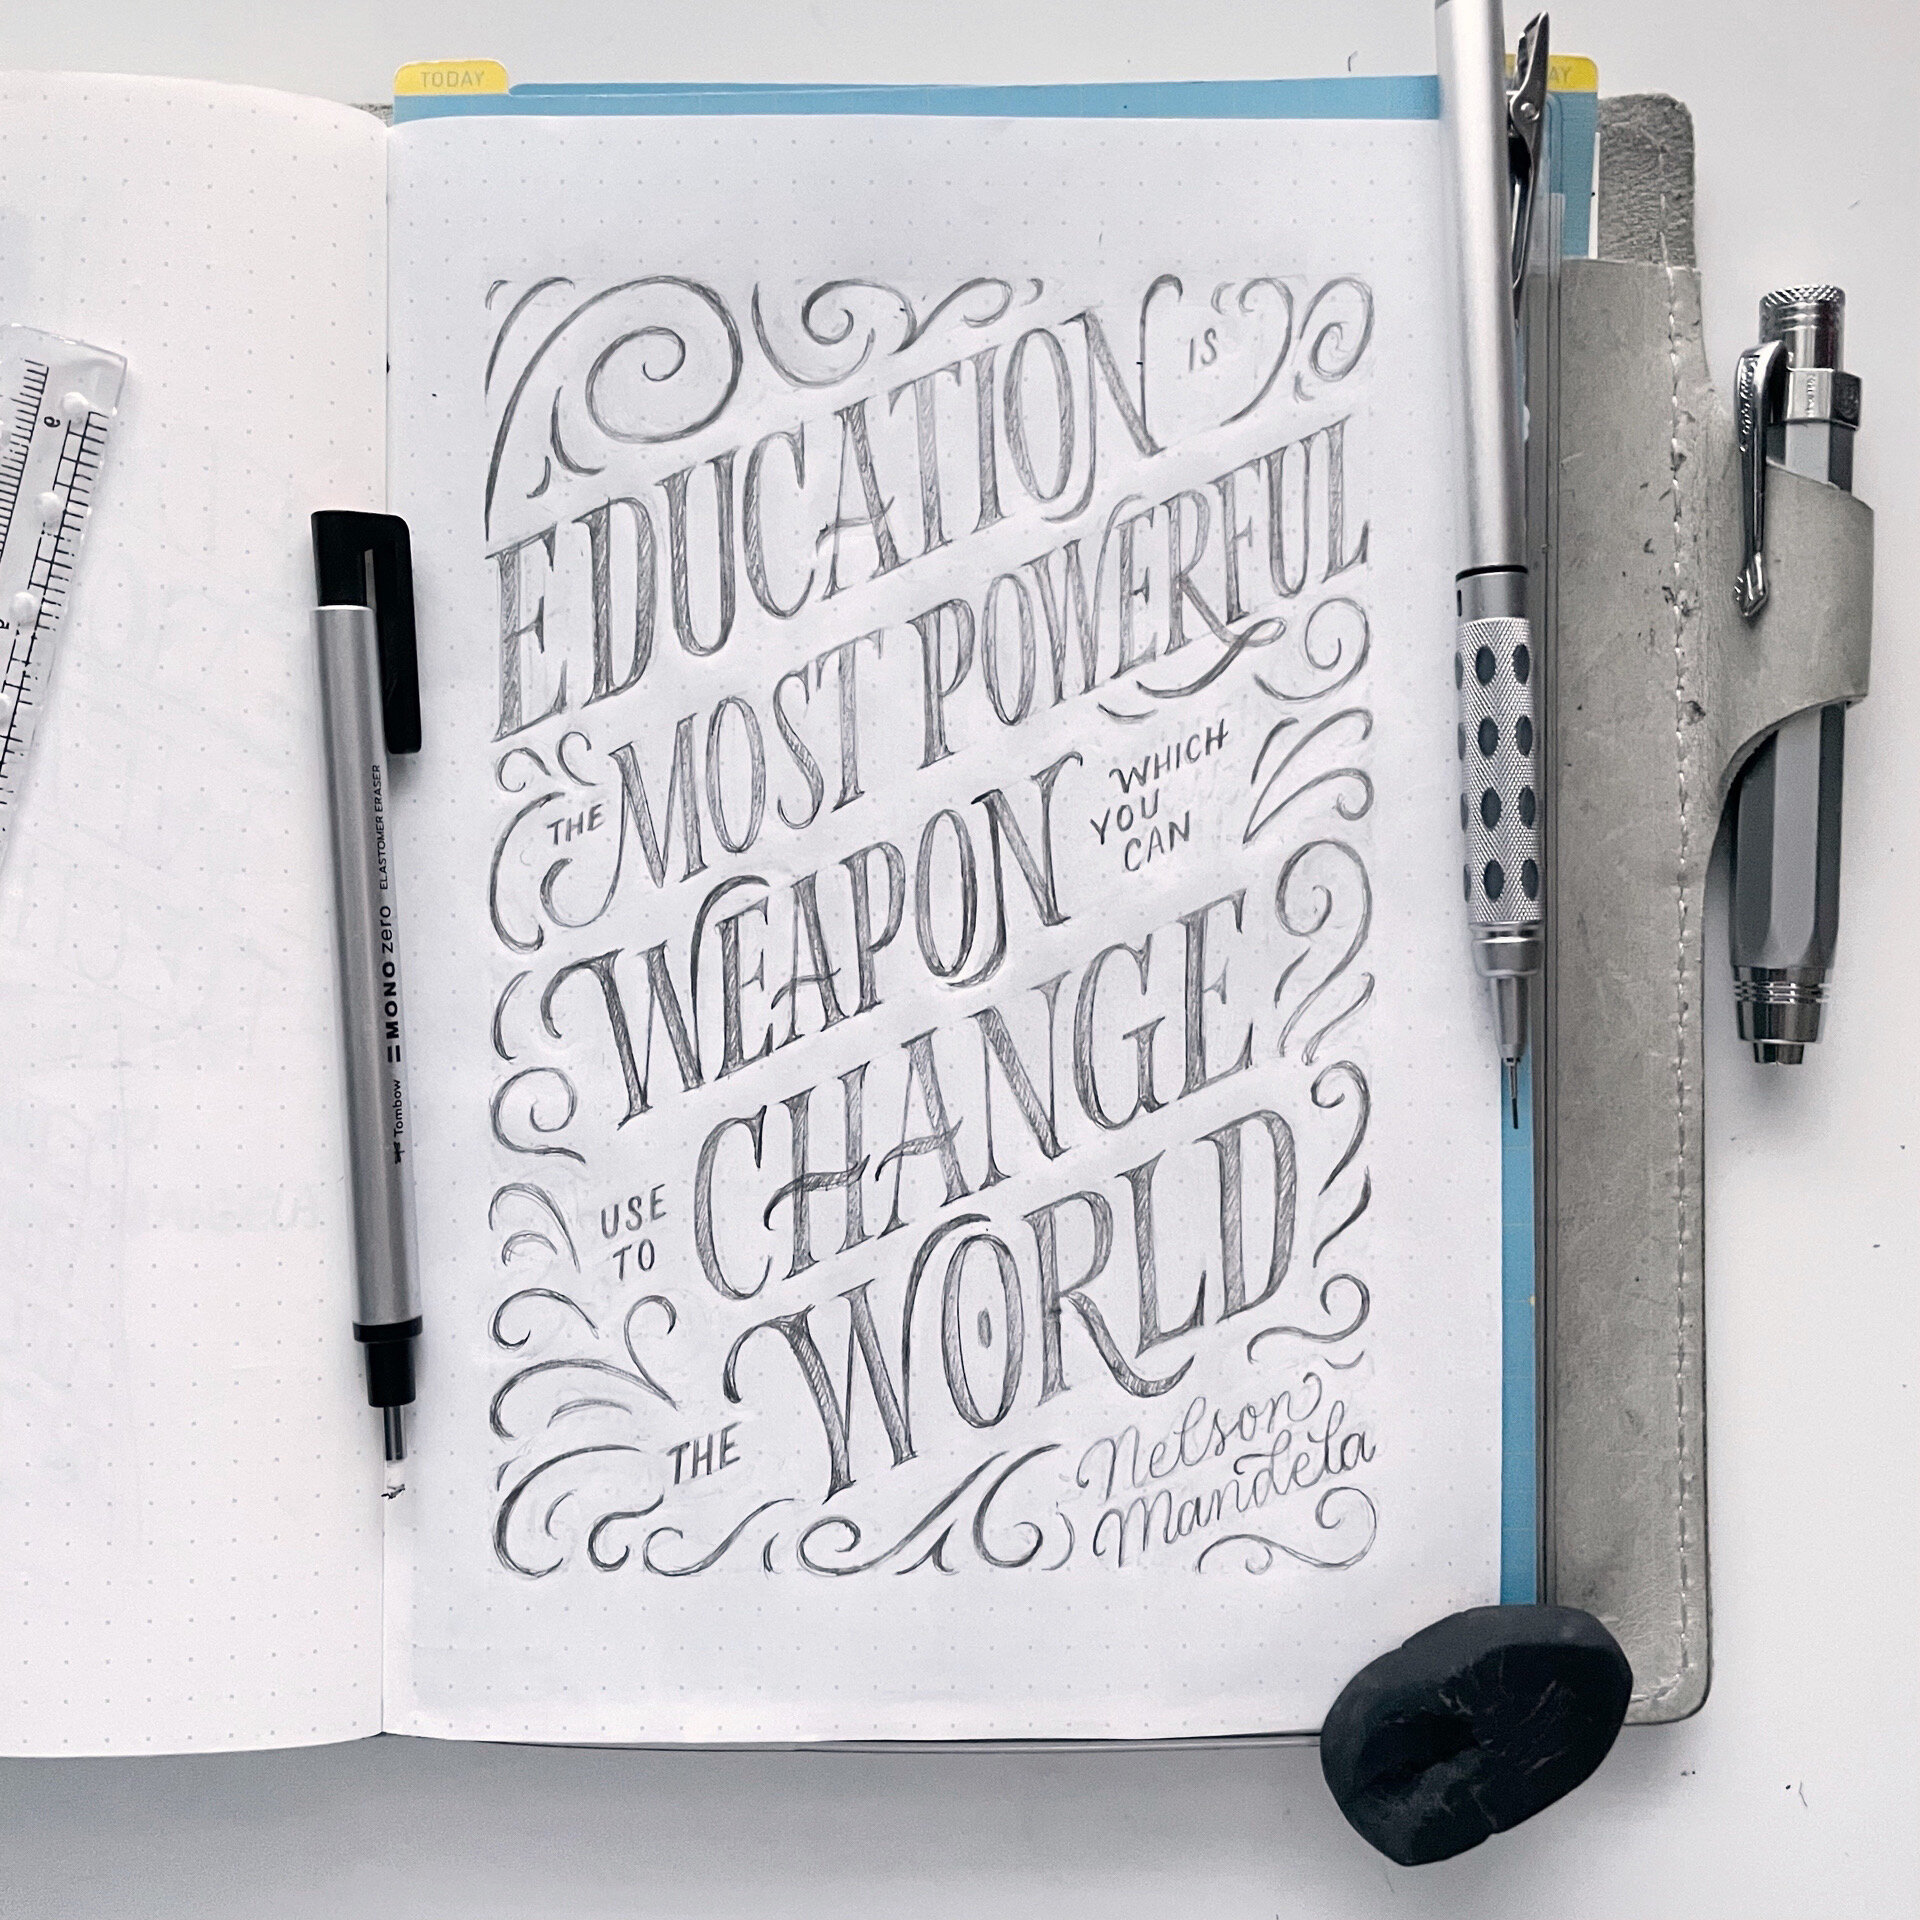 TODAY
AY
EDUCATION IS
THE MOST POWERFUL
WEAPON WHICH
YOU
CAN
USE
TO
CHANGE
THE WORLD
Nelson
Mandela
Tombow MONO zero ELASTOMER ERASER
6